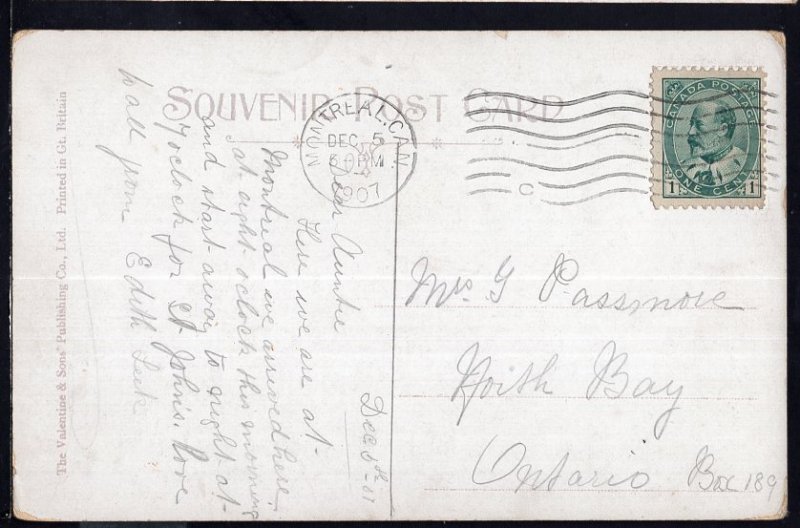 SOUVENIR POST CARD
MONTREAL, CAN.
DEC 5
PM
1907
C
CANADA POSTAGE
1 ONE CENT 1
Dec 5th -07
Dear Auntie
Here we are at-
Montreal we arrived here
at eight oclock this morning
and start away to night at-
7 oclock for St John's. Love
to all from Edith
Mrs G Passmore
North Bay
Ontario Box 189
The Valentine & Sons' Publishing Co., Ltd. Printed in Gt. Britain